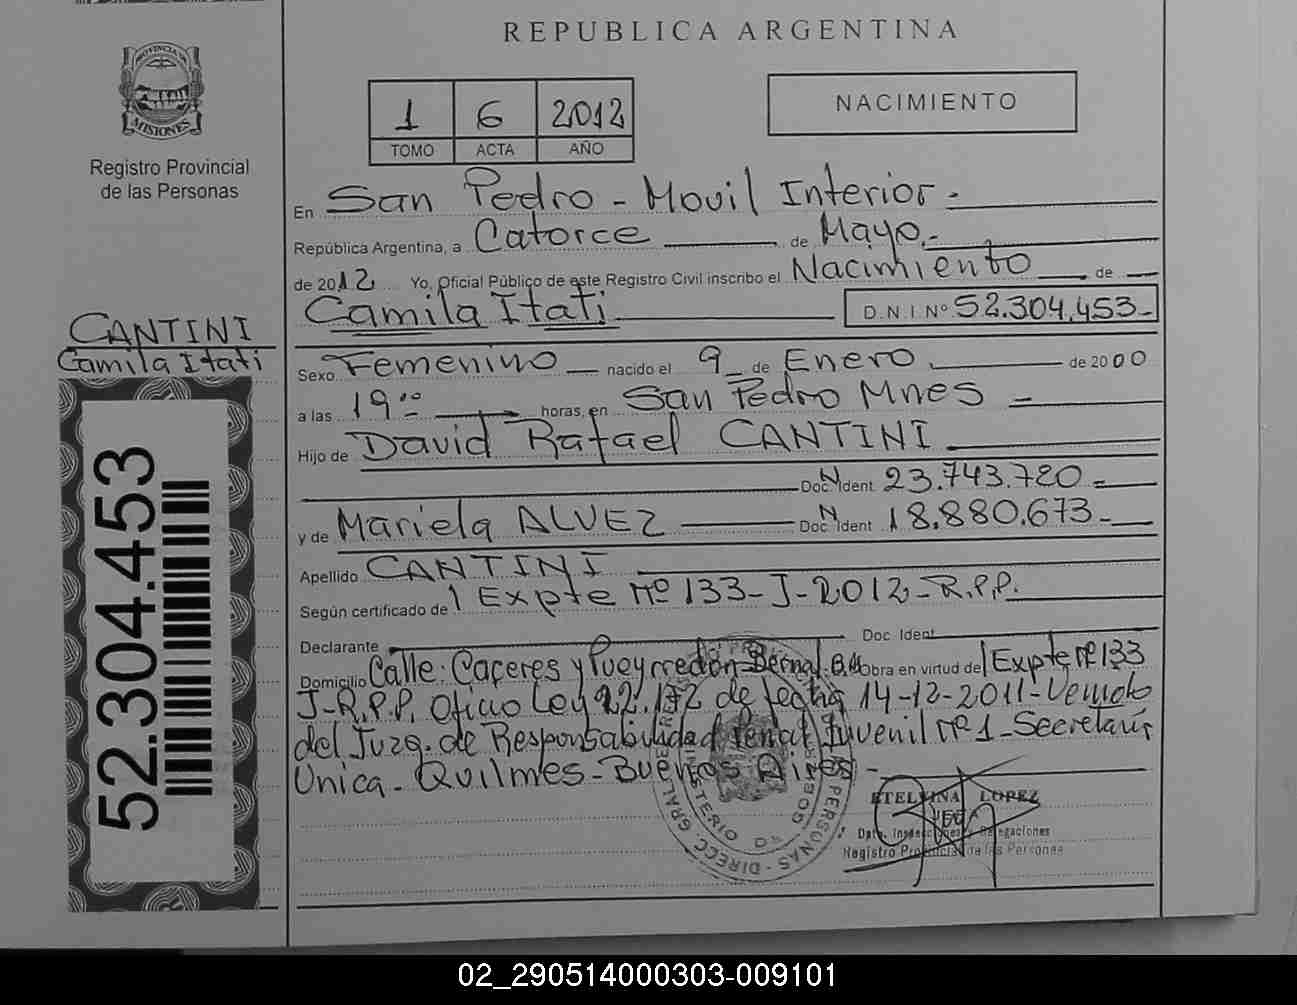 REPUBLICA ARGENTINA
PROVINCIA DE
MISIONES
Registro Provincial
de las Personas
1 6 2012
TOMO ACTA AÑO
NACIMIENTO
En San Pedro - Movil Interior -
República Argentina, a Catorce de Mayo.-
de 2012 Yo, Oficial Público de este Registro Civil inscribo el Nacimiento de
Camila Itati D.N.I Nº 52.304.453-
CANTINI
Camila Itati
52.304.453
Sexo Femenino nacido el 9 de Enero de 2000
a las 19:00 horas, en San Pedro Mnes
Hijo de David Rafael CANTINI
Doc. Ident N 23.743.720
y de Mariela ALVEZ Doc. Ident N 18.880.673-
Apellido CANTINI
Según certificado de 1 Expte Nº 133-J-2012-R.P.P.
Declarante Doc Ident
Domicilio Calle: Caceres y Pueyrredón-Bernal. Obra en virtud de 1 Expte Nº 133
J-R.P.P. Oficio Ley 22.172 de fecha 14-12-2011-Venido
del Juzg. de Responsabilidad Penal Juvenil Nº 1-Secretaría
Unica- Quilmes-Buenos Aires-
ETELVINA LOPEZ
JEFA
Dpto. Inspecciones y Delegaciones
Registro Provincial de las Personas
MINISTERIO DE GOBIERNO
DIRECC GRAL PERSONAS
02_290514000303-009101